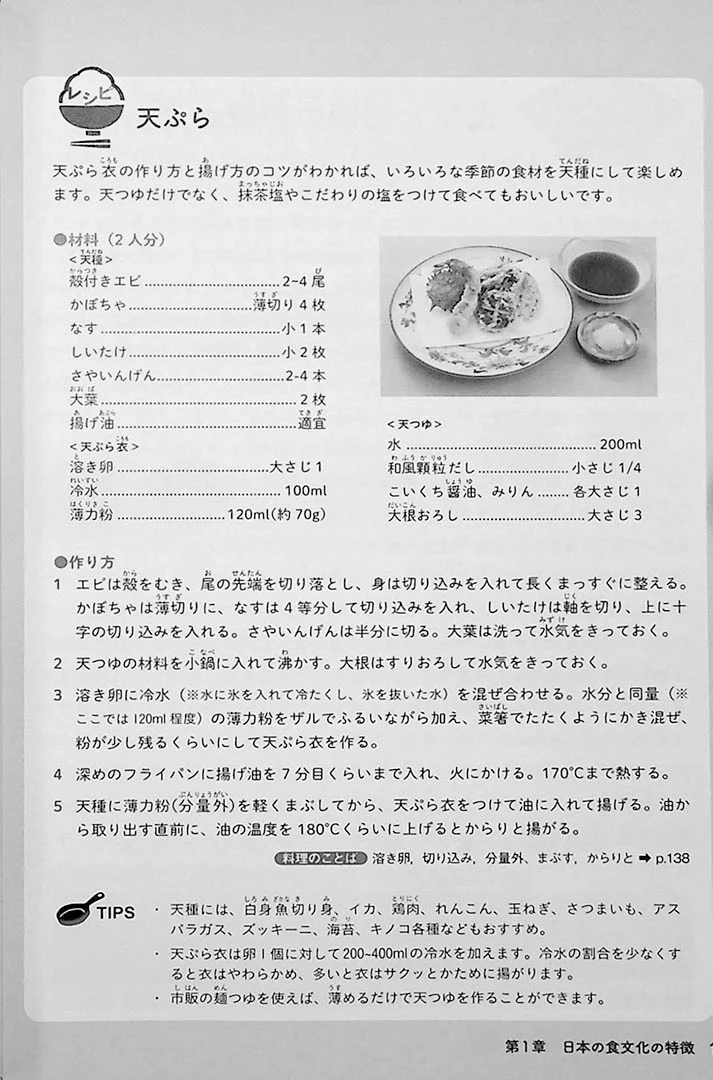 レシピ
天ぷら
天ぷら衣の作り方と揚げ方のコツがわかれば、いろいろな季節の食材を天種にして楽しめ
ます。天つゆだけでなく、抹茶塩やこだわりの塩をつけて食べてもおいしいです。
●材料（2人分）
<天種>
殻付きエビ……………………2~4尾
かぼちゃ……………………薄切り4枚
なす……………………小1本
しいたけ……………………小2枚
さやいんげん……………………2-4本
大葉……………………2枚
揚げ油……………………適宜
<天ぷら衣>
溶き卵……………………大さじ1
冷水……………………100ml
薄力粉……………………120ml(約70g)
<天つゆ>
水……………………200ml
和風顆粒だし……………………小さじ1/4
こいくち醤油、みりん………各大さじ1
大根おろし……………………大さじ3
●作り方
1 エビは殻をむき、尾の先端を切り落とし、身は切り込みを入れて長くまっすぐに整える。
かぼちゃは薄切りに、なすは4等分して切り込みを入れ、しいたけは軸を切り、上に十
字の切り込みを入れる。さやいんげんは半分に切る。大葉は洗って水気をきっておく。
2 天つゆの材料を小鍋に入れて沸かす。大根はすりおろして水気をきっておく。
3 溶き卵に冷水（※水に氷を入れて冷たくし、氷を抜いた水）を混ぜ合わせる。水分と同量（※
ここでは120ml程度）の薄力粉をザルでふるいながら加え、菜箸でたたくようにかき混ぜ、
粉が少し残るくらいにして天ぷら衣を作る。
4 深めのフライパンに揚げ油を7分目くらいまで入れ、火にかける。170℃まで熱する。
5 天種に薄力粉(分量外)を軽くまぶしてから、天ぷら衣をつけて油に入れて揚げる。油か
ら取り出す直前に、油の温度を180℃くらいに上げるとからりと揚がる。
料理のことば 溶き卵，切り込み，分量外、まぶす，からりと ➡ p.138
TIPS
・ 天種には、白身魚切り身、イカ、鶏肉、れんこん、玉ねぎ、さつまいも、アス
パラガス、ズッキーニ、海苔、キノコ各種などもおすすめ。
・ 天ぷら衣は卵1個に対して200~400mlの冷水を加えます。冷水の割合を少なくす
ると衣はやわらかめ、多いと衣はサクッとかために揚がります。
・ 市販の麺つゆを使えば、薄めるだけで天つゆを作ることができます。
第1章 日本の食文化の特徴